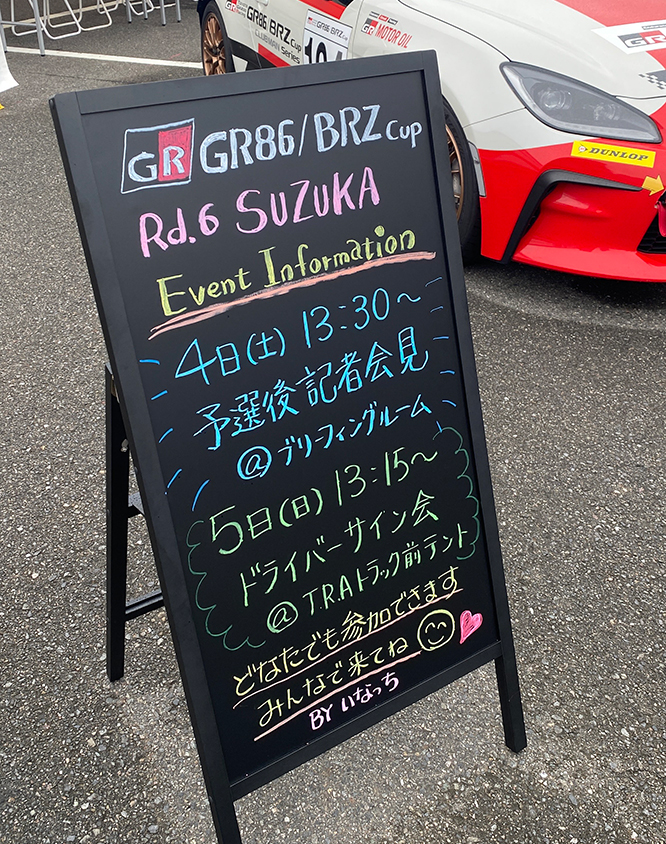 GR86/BRZ Cup
CLUBMAN Series
GR MOTOR OIL
GR
DUNLOP
GR GR86/BRZ Cup
Rd.6 SUZUKA
Event Information
4日(土) 13:30～
予選後記者会見
@ブリーフィングルーム
5日(日) 13:15～
ドライバーサイン会
@ T.R.Aトラック前テント
どなたでも参加できます
みんなで来てね
BY いなっち